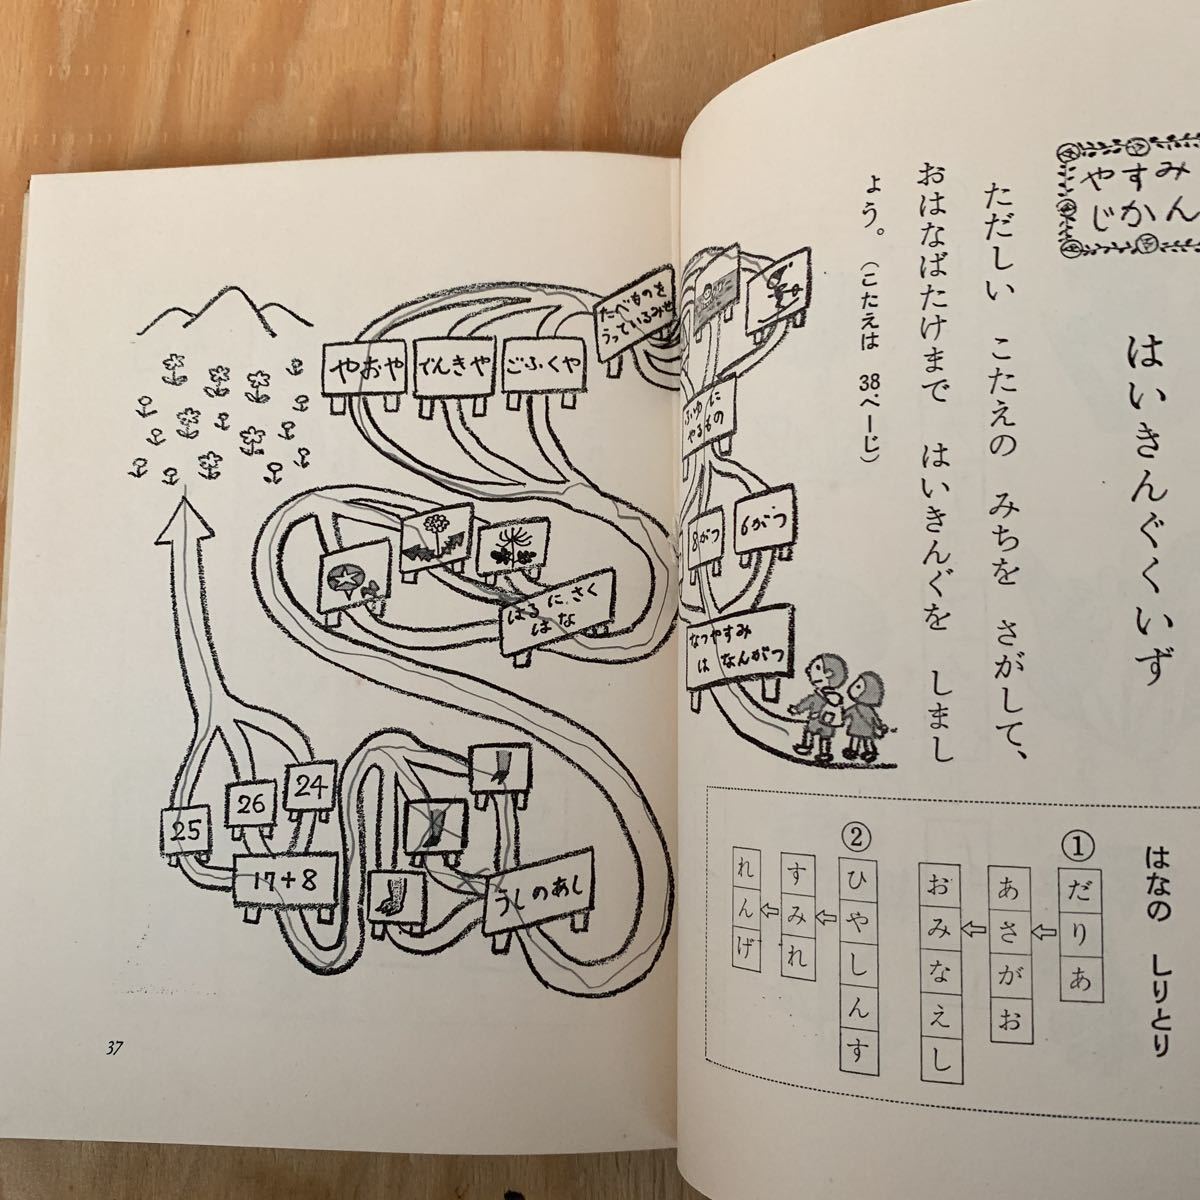 やすみ
じかん
はいきんぐくいず
ただしい こたえの みちを さがして、
おはなばたけまで はいきんぐを しまし
ょう。(こたえは 38ぺーじ)
なつやすみ
は なんがつ
8がつ
6がつ
ふゆに
やるもの
たべものを
うっているみせ
ごふくや
でんきや
やおや
はるにさく
はな
うしのあし
17+8
24
26
25
はなの しりとり
①
だりあ
あさがお
おみなえし
②
ひやしんす
すみれ
れんげ
37